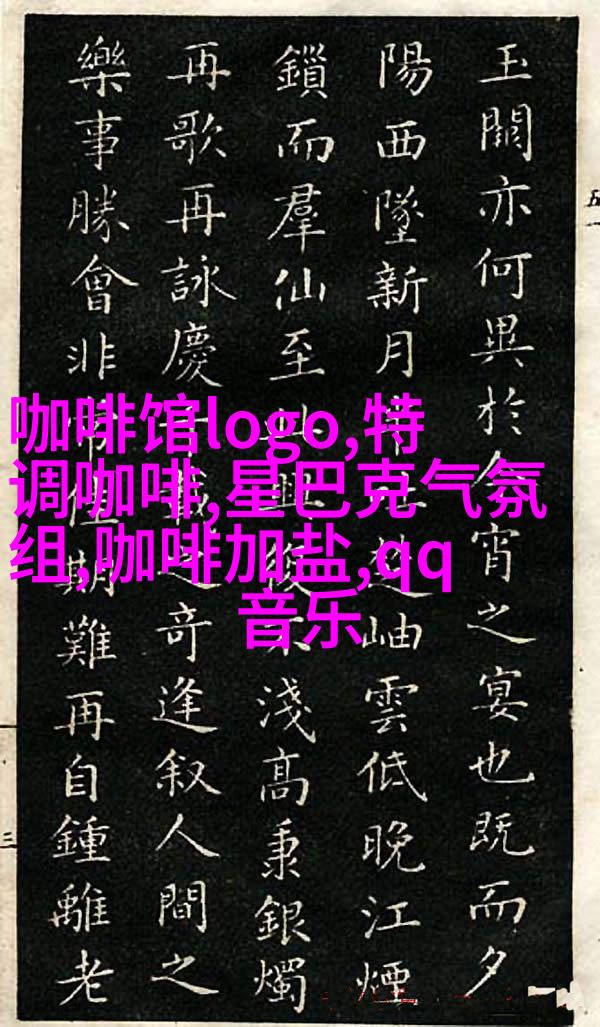 咖啡馆logo,特
调咖啡,星巴克气氛
组,咖啡加盐,qq
音乐
玉闕亦何異於今宵之宴也既而夕
陽西墜新月岫雲低晚江煙
鎖而羣仙至淺高秉銀燭
再歌再詠慶之奇逢叙人間之
樂事勝會非期難再自鍾離老